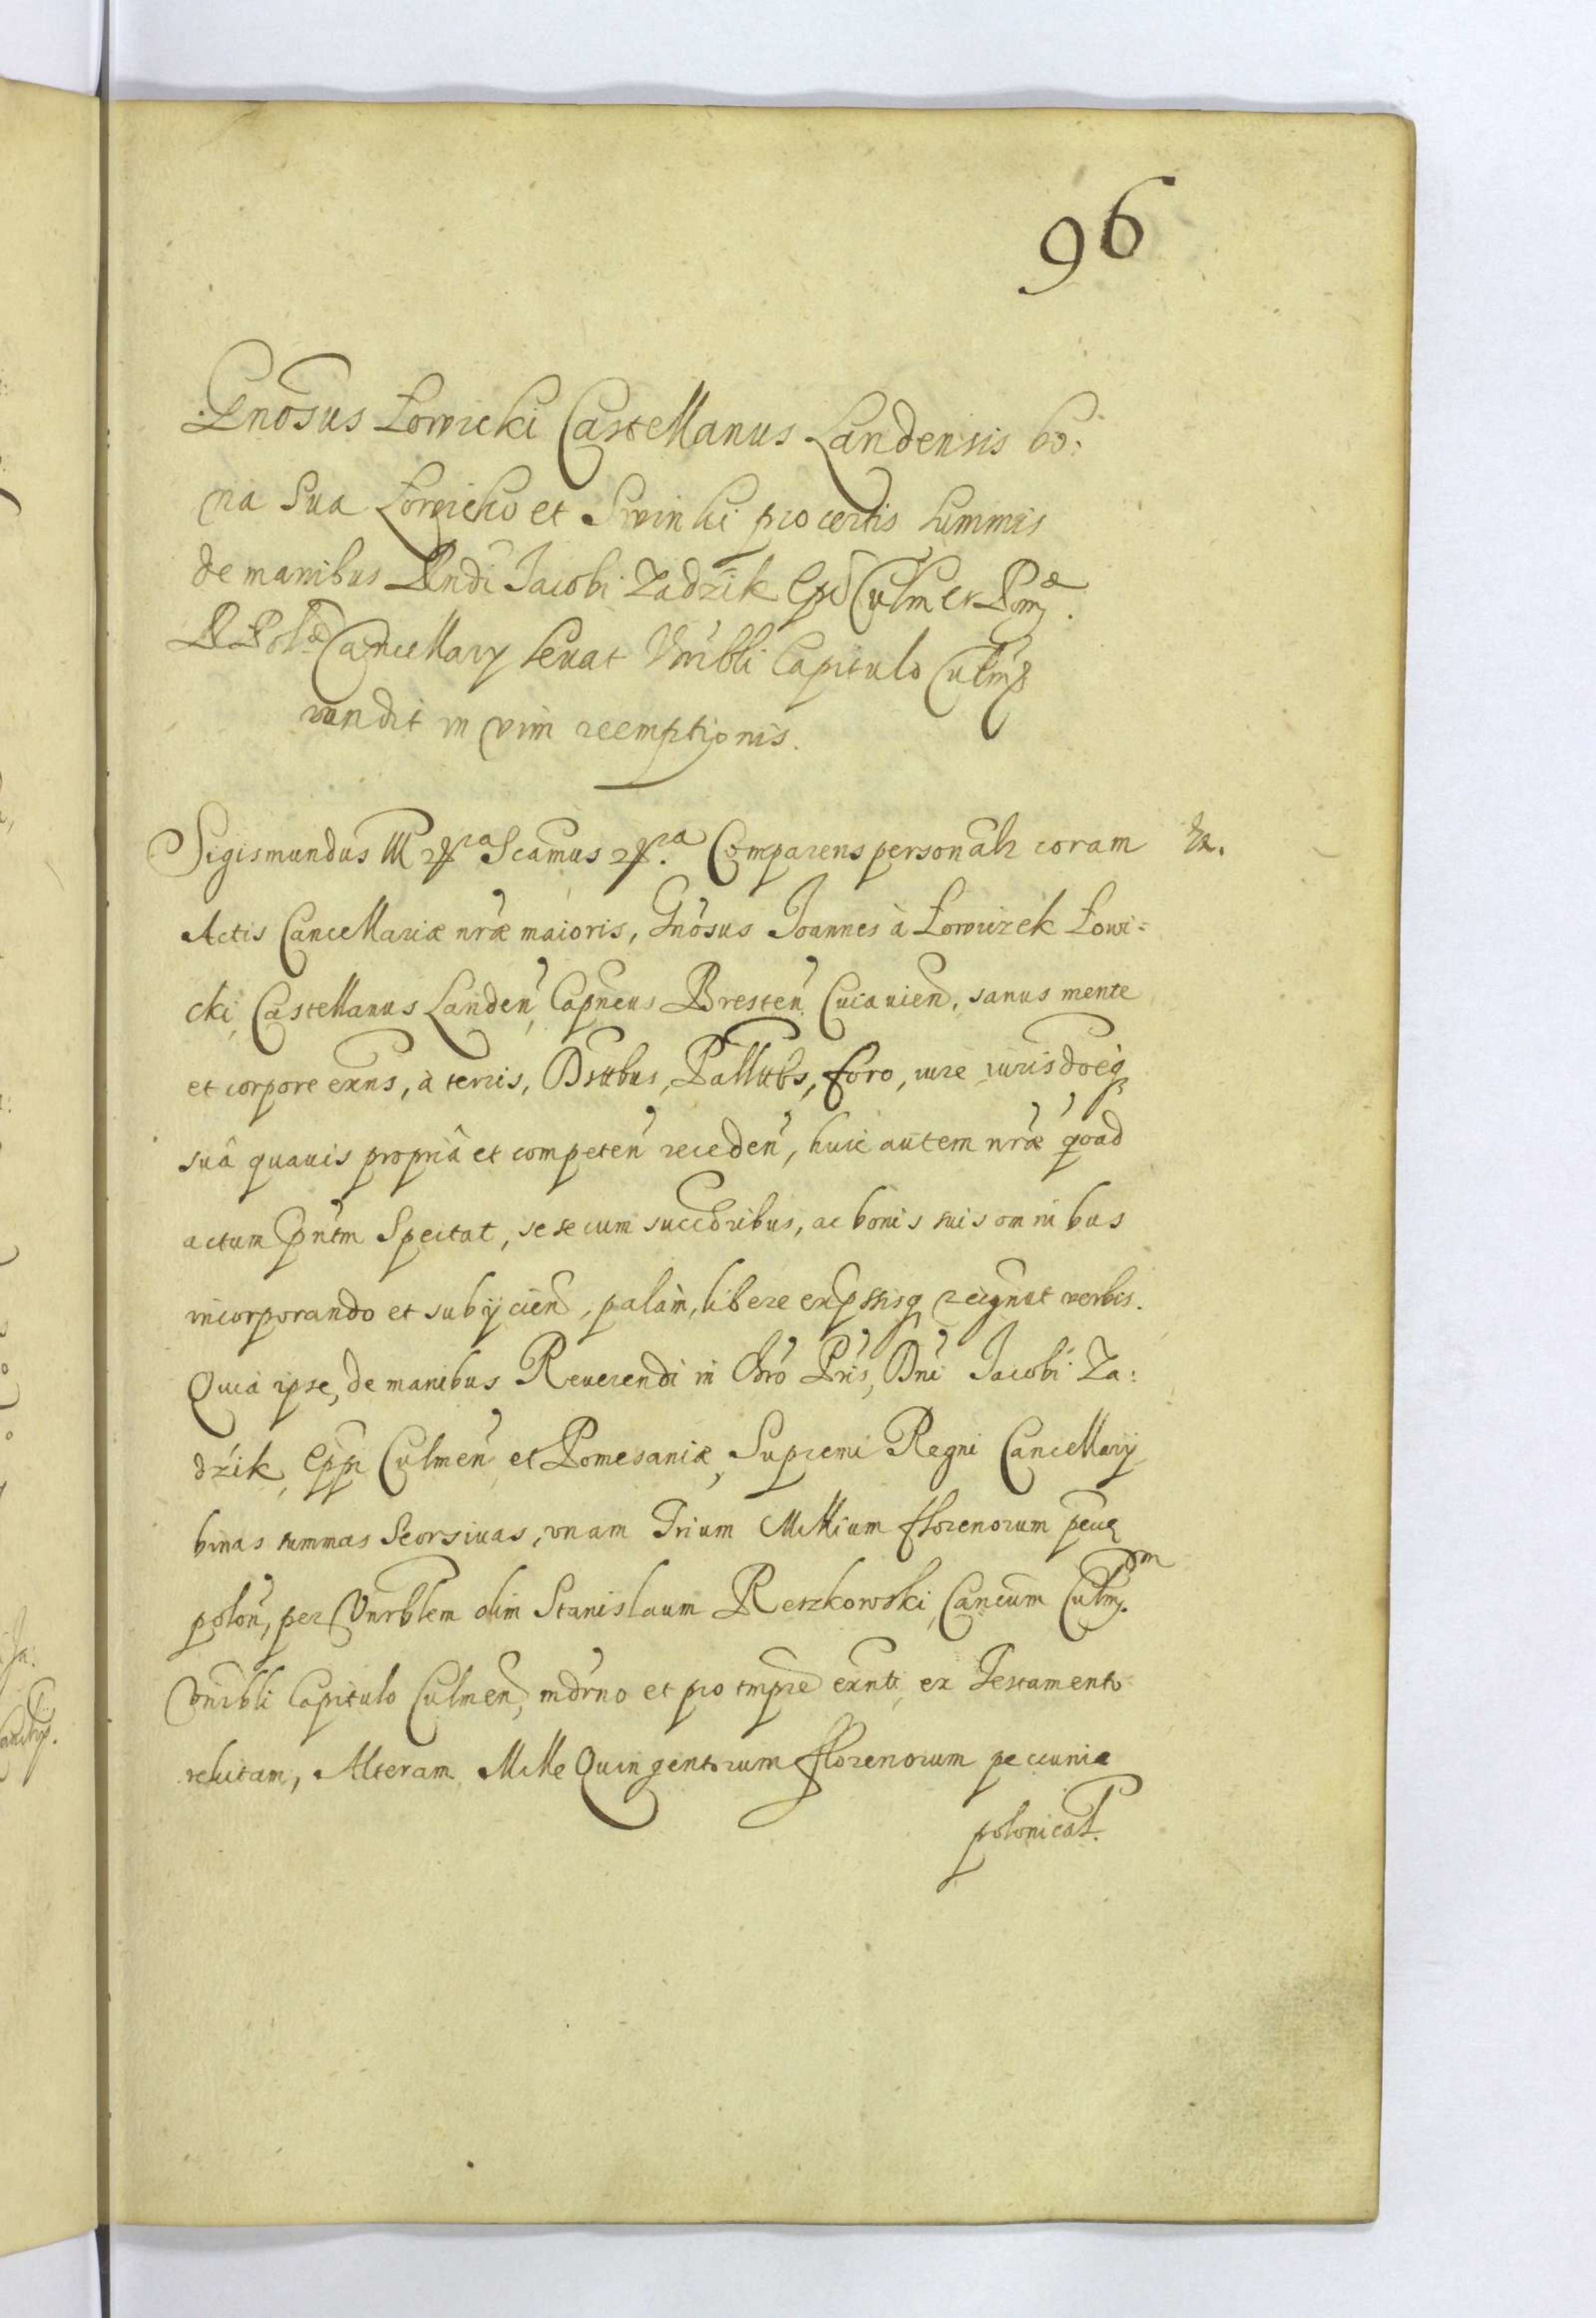 96
Gnosus Łowicki Castellanus Landensis bo:
na sua Łowicko et Swinki pro certis summis
de manibus Rndi Jacobi Zadzik Epi Culm et Pomæ.
R Polæ Cancellary levat Vnrbli Capitulo Culm
vendit in vim reemptionis.
Sigismundus III Scamus Comparens personalr coram
Actis Cancellariæ nræ maioris, Gnosus Joannes à Łowiczek Łowi=
cki, Castellanus Landen, Capneus Bresten Cuiavien, sanus mente
et corpore exns, à terris, Dstibus, Pallttbs, foro, iure iurisdoeq
suâ quavis propriâ et competen receden, huic autem nræ qoad
actum pntm Spectat, sese cum succoribus, ac bonis suis omnibus
incorporando et subijcien, palàm, libere expssisq recgnvt verbis.
Quia ipse, de manibus Reverendi in Chro Pris, Dni Jacobi Za:
dzik, Eppi Culmen et Pomesaniæ, Supremi Regni Cancellarij
binas summas Seorsivas, vnam Trium Millium fflorenorum pecuæ
polon, per Vnrblem olim Stanislaum Reszkowski, Cancum Culm.
Vnrbli Capitulo Culmen, mdrno et pro tmpre exnti, ex Testamento
relictam, Alteram Mille Quingentorum fflorenorum pecuniæ
polonical.